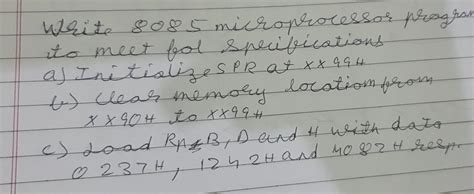 Write 8085 microprocessor program
to meet fol specifications
a) Initialize SPR at XX99H
b) Clear memory location from
XX90H to XX99H
c) Load Rp B, D and H with data
0237H, 1242H and 4082H resp.